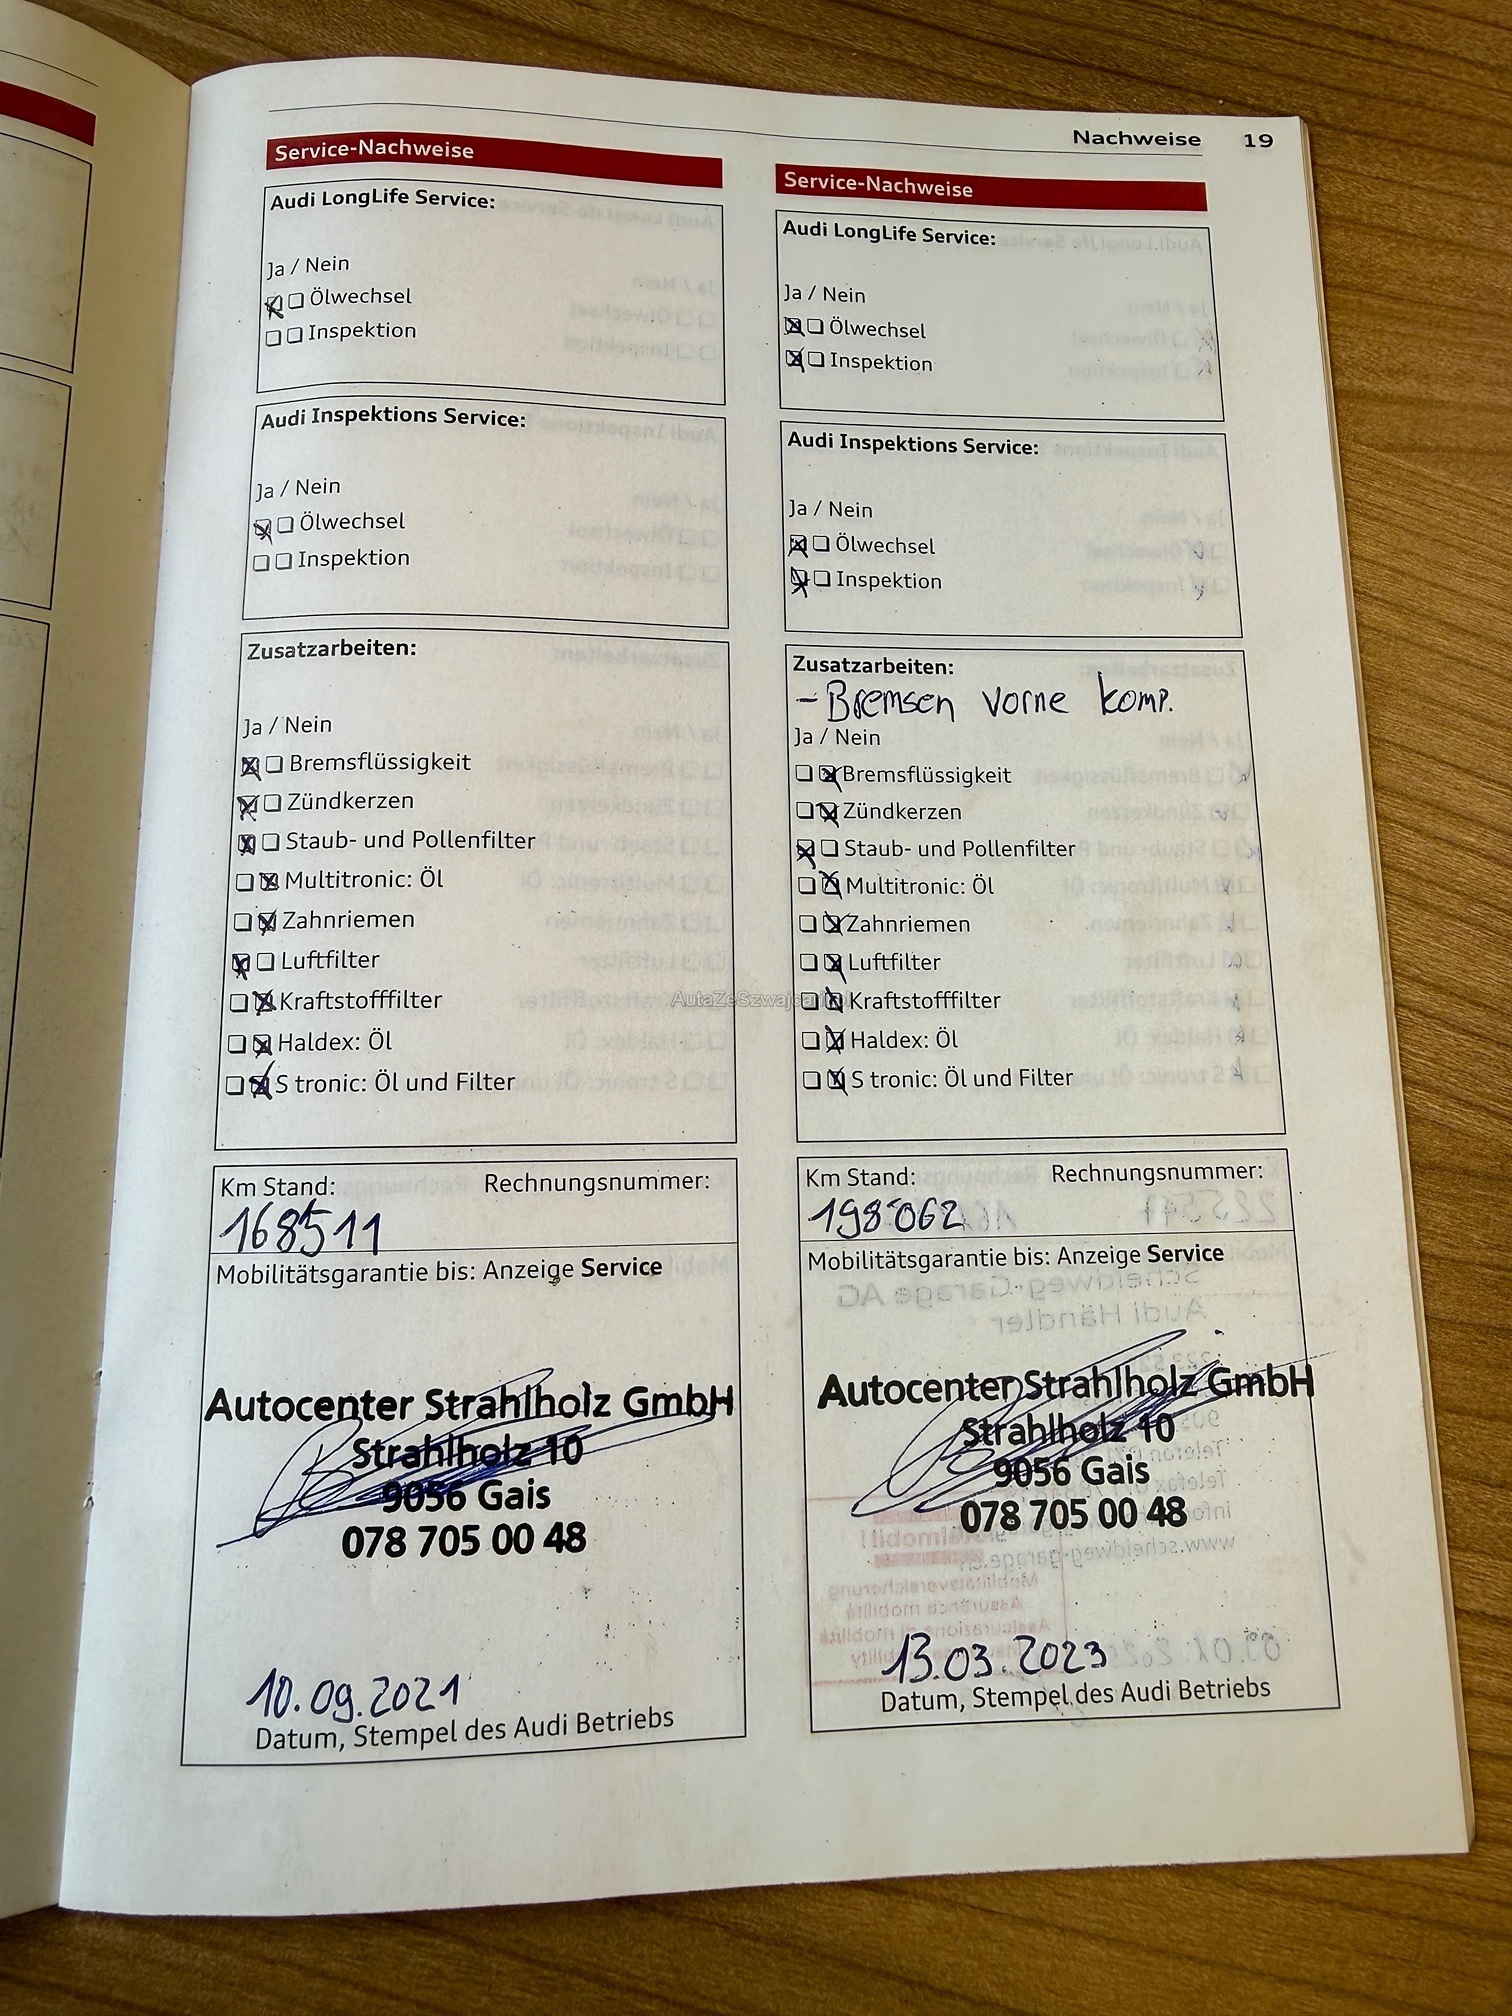 Nachweise 19
Service-Nachweise
Audi LongLife Service:
Ja / Nein
Ölwechsel
Inspektion
Audi Inspektions Service:
Ja / Nein
Ölwechsel
Inspektion
Zusatzarbeiten:
Ja / Nein
Bremsflüssigkeit
Zündkerzen
Staub- und Pollenfilter
Multitronic: Öl
Zahnriemen
Luftfilter
Kraftstofffilter
Haldex: Öl
S tronic: Öl und Filter
Km Stand: Rechnungsnummer:
168511
Mobilitätsgarantie bis: Anzeige Service
Autocenter Strahlholz GmbH
Strahlholz 10
9056 Gais
078 705 00 48
10.09.2021
Datum, Stempel des Audi Betriebs
Service-Nachweise
Audi LongLife Service:
Ja / Nein
Ölwechsel
Inspektion
Audi Inspektions Service:
Ja / Nein
Ölwechsel
Inspektion
Zusatzarbeiten:
- Bremsen vorne komp.
Ja / Nein
Bremsflüssigkeit
Zündkerzen
Staub- und Pollenfilter
Multitronic: Öl
Zahnriemen
Luftfilter
Kraftstofffilter
Haldex: Öl
S tronic: Öl und Filter
Km Stand: Rechnungsnummer:
198'062
Mobilitätsgarantie bis: Anzeige Service
Autocenter Strahlholz GmbH
Strahlholz 10
9056 Gais
078 705 00 48
13.03.2023
Datum, Stempel des Audi Betriebs